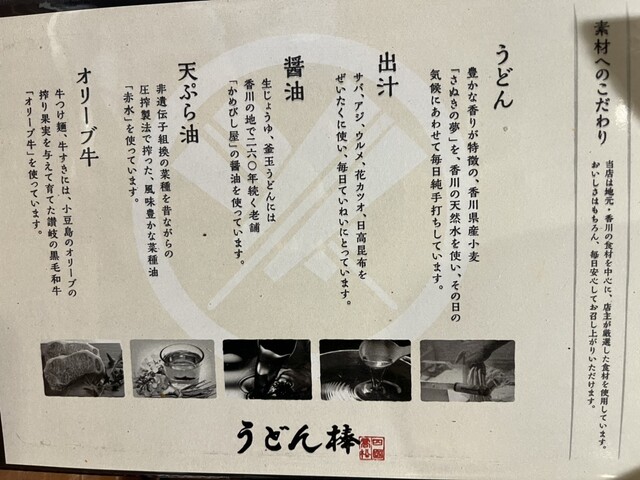 素材へのこだわり
当店は地元・香川の食材を中心に、店主が厳選した食材を使用しています。
おいしさはもちろん、毎日安心してお召し上がりいただけます。
うどん
豊かな香りが特徴の、香川県産小麦
「さぬきの夢」を、香川の天然水を使い、その日の
気候にあわせて毎日純手打ちしています。
出汁
サバ、アジ、ウルメ、花カツオ、日高昆布を
ぜいたくに使い、毎日ていねいにとっています。
醤油
生じょうゆ、釜玉うどんには
香川の地で二六〇年続く老舗
「かめびし屋」の醤油を使っています。
天ぷら油
非遺伝子組換の菜種を昔ながらの
圧搾製法で搾った、風味豊かな菜種油
「赤水」を使っています。
オリーブ牛
牛つけ麺、牛すきには、小豆島のオリーブの
搾り果実を与えて育てた讃岐の黒毛和牛
「オリーブ牛」を使っています。
うどん棒